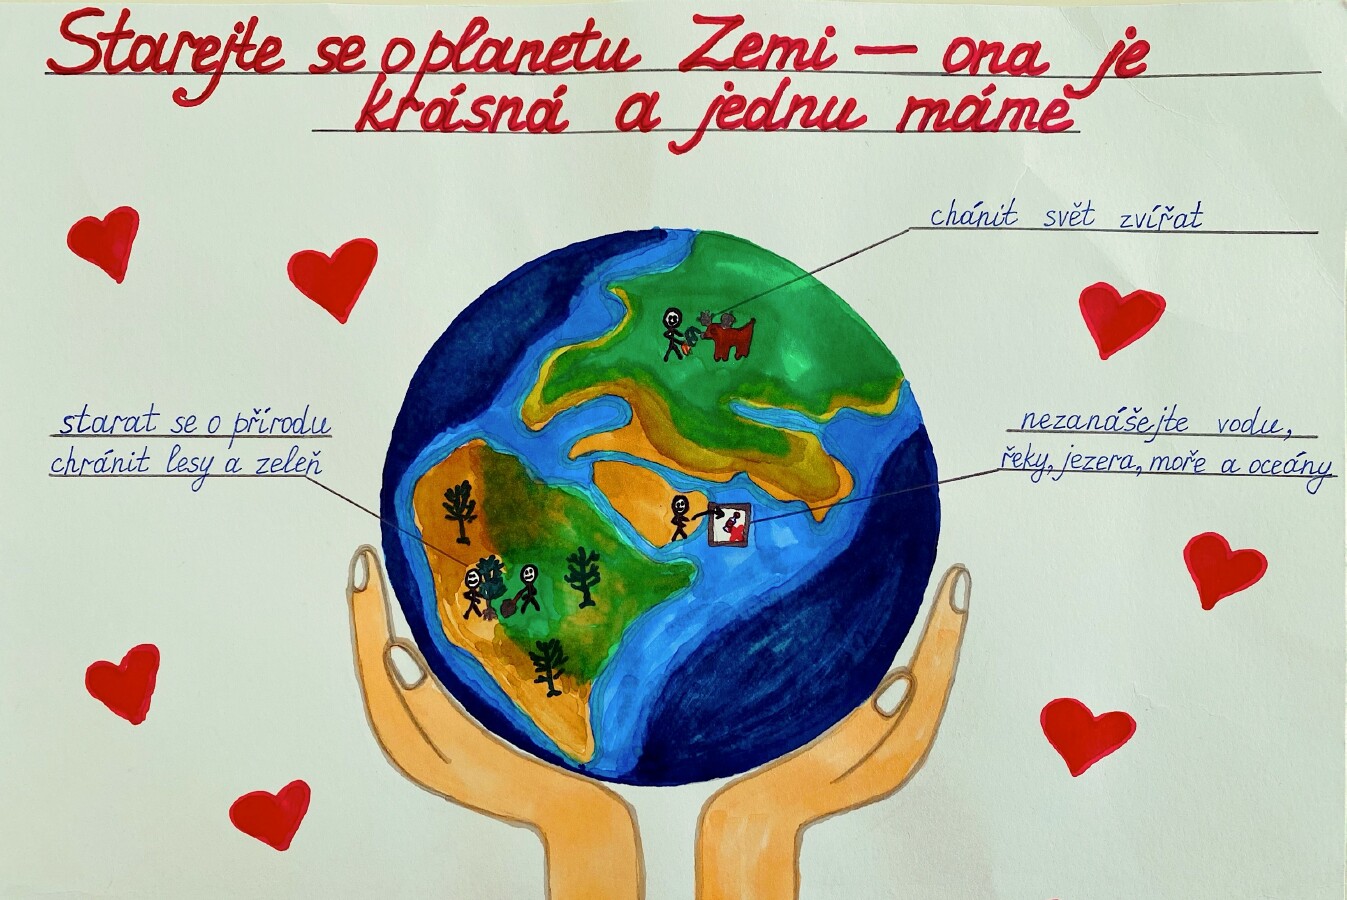 Starejte se o planetu Zemi — ona je
krásná a jednu máme
chánit svět zvířat
starat se o přírodu
chránit lesy a zeleň
nezanášejte vodu,
řeky, jezera, moře a oceány